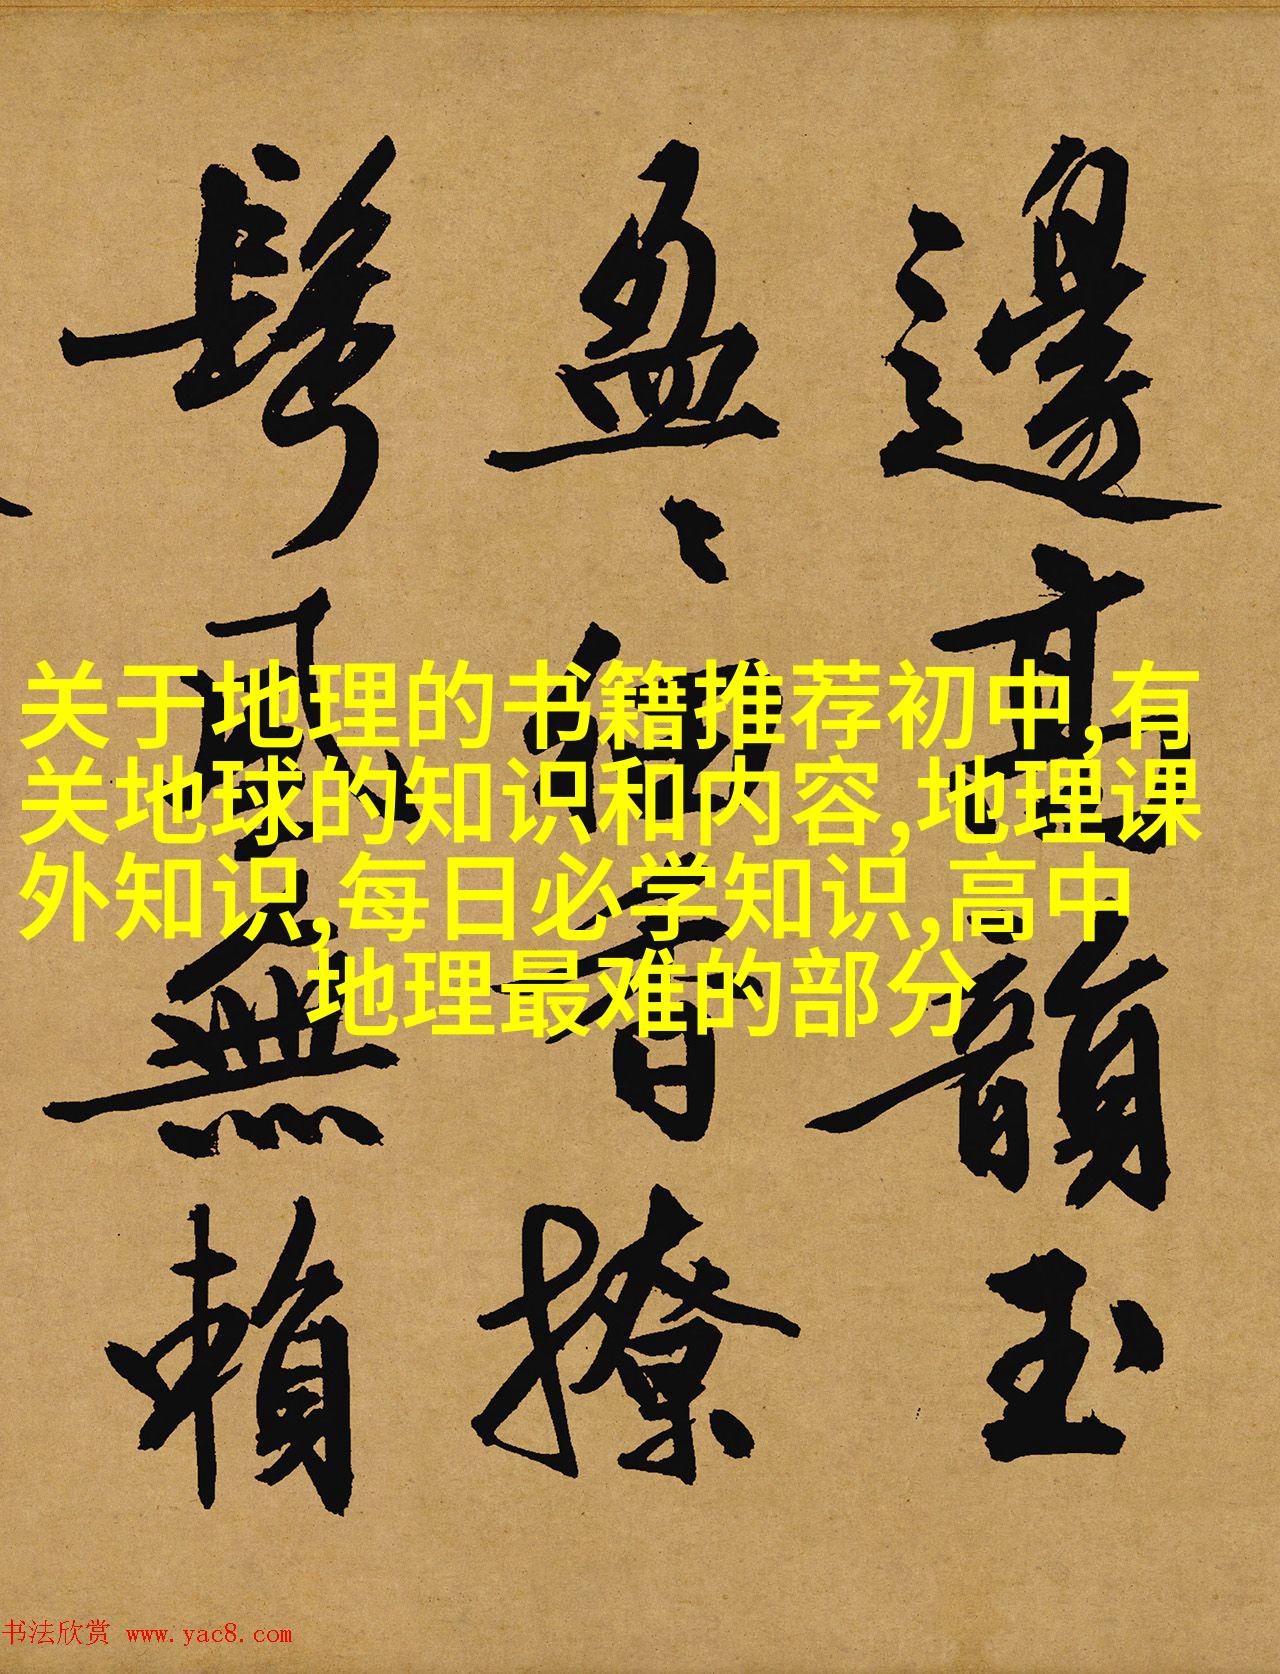 邊高韻玉
盈盈細香撩
鬢風無賴
关于地理的书籍推荐初中,有
关地球的知识和内容,地理课
外知识,每日必学知识,高中
地理最难的部分
书法欣赏 www.yac8.com